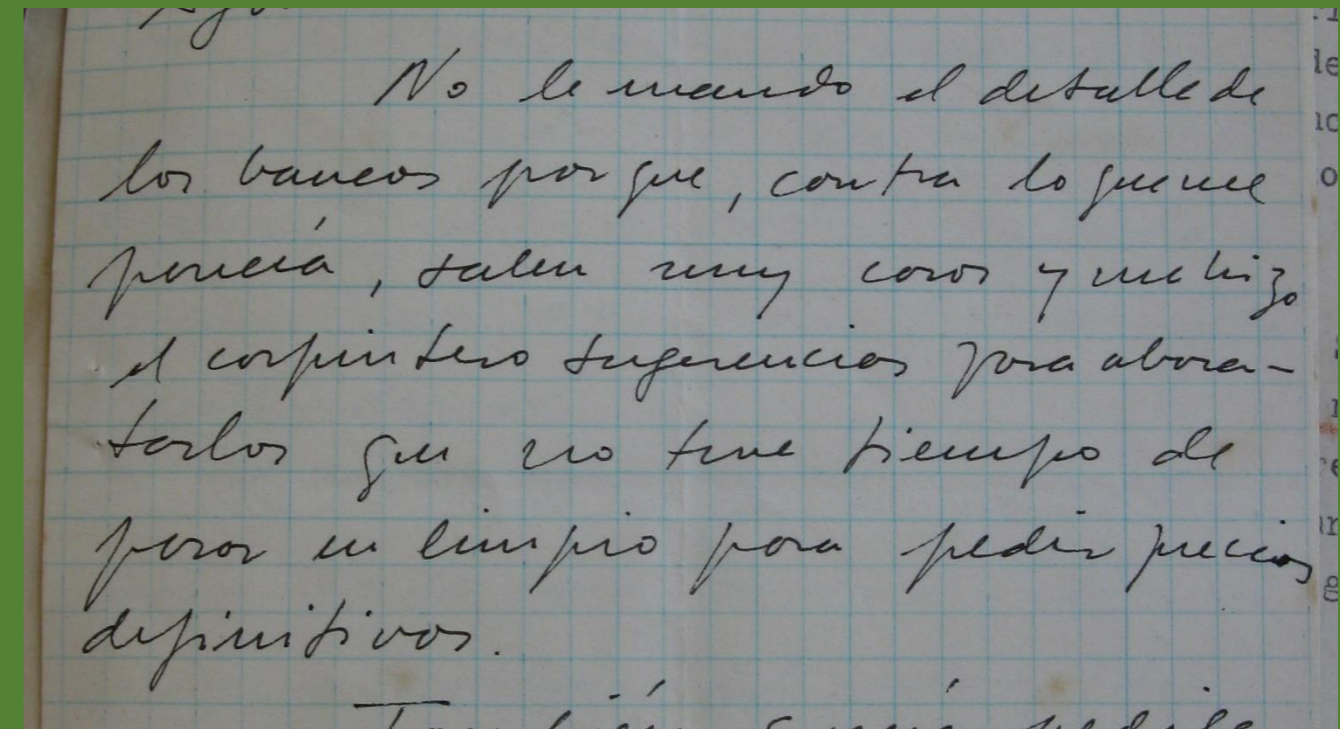 No le mando el detalle de
los bancos porque, contra lo que me
parecía, salen muy caros y me hizo
el carpintero sugerencias para abara-
tarlos que no tuve tiempo de
pasar en limpio para pedir precios
definitivos.
También quería pedirle